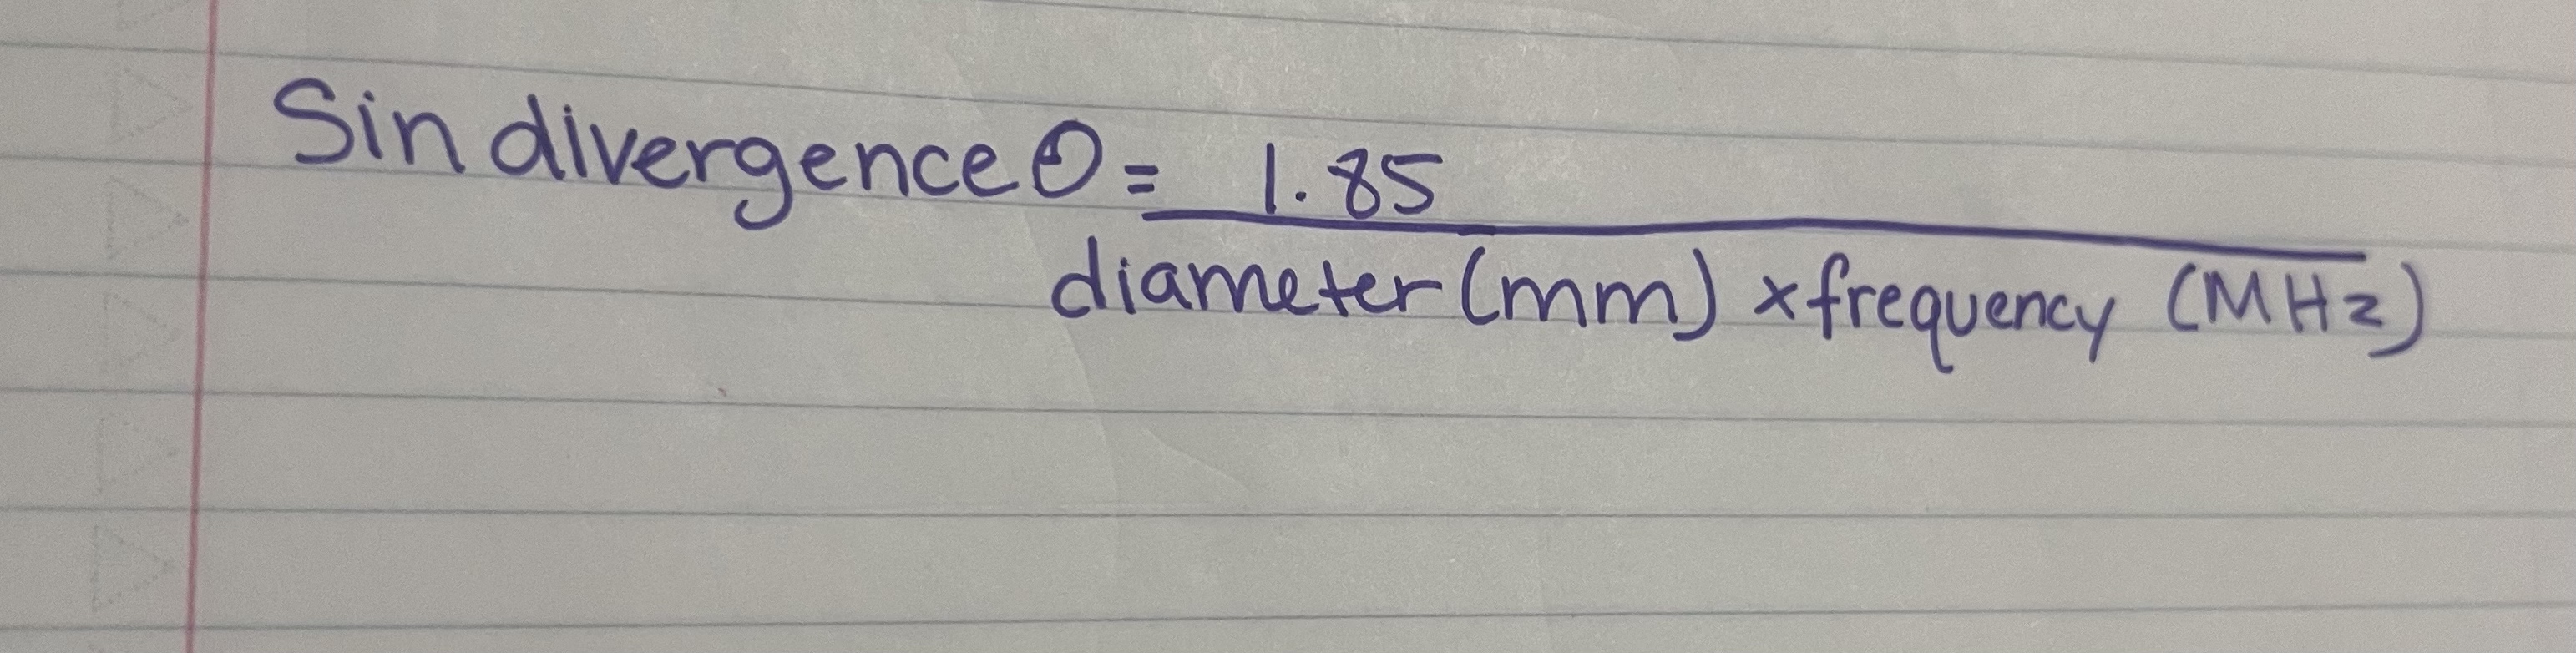 Sin divergence θ = 1.85
diameter (mm) x frequency (MHz)